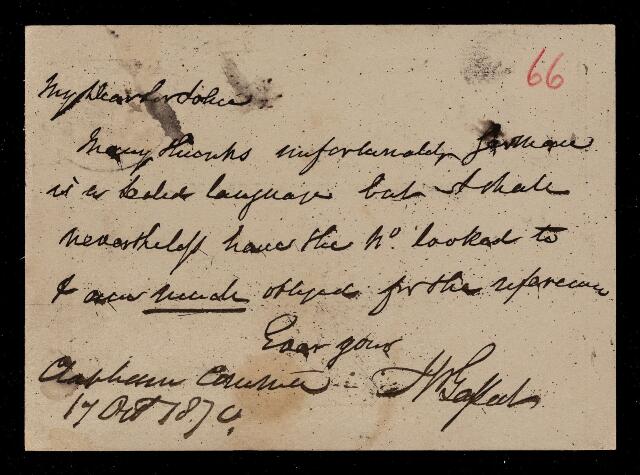 66
My dear Sir John
Many thanks unfortunately German
is a sealed language but I shall
nevertheless have the No. looked to
I am much obliged for the reference
Ever yours
Clapham Common
17 Oct 1870.